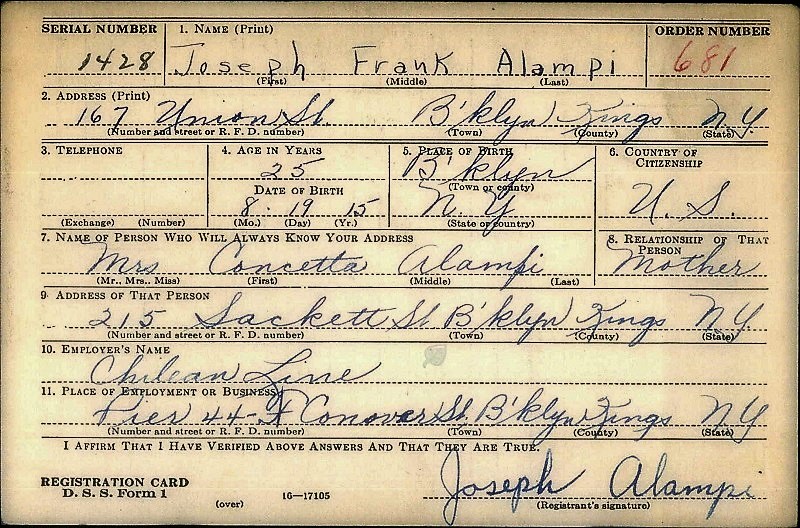 SERIAL NUMBER 1. NAME (Print) ORDER NUMBER
1428 Joseph Frank Alampi 681
(First) (Middle) (Last)
2. ADDRESS (Print)
167 Union St. B'klyn Kings N.Y.
(Number and street or R. F. D. number) (Town) (County) (State)
3. TELEPHONE 4. AGE IN YEARS 5. PLACE OF BIRTH 6. COUNTRY OF CITIZENSHIP
25 B'klyn
DATE OF BIRTH (Town or county)
8. 19 15 N.Y U.S.
(Exchange) (Number) (Mo.) (Day) (Yr.) (State or country)
7. NAME OF PERSON WHO WILL ALWAYS KNOW YOUR ADDRESS 8. RELATIONSHIP OF THAT PERSON
Mrs Concetta Alampi Mother
(Mr., Mrs., Miss) (First) (Middle) (Last)
9. ADDRESS OF THAT PERSON
215 Sackett St B'klyn Kings N.Y.
(Number and street or R. F. D. number) (Town) (County) (State)
10. EMPLOYER'S NAME
Chilean Line
11. PLACE OF EMPLOYMENT OR BUSINESS
Pier 44-Ft Conover St. B'klyn Kings N.Y
(Number and street or R. F. D. number) (Town) (County) (State)
I AFFIRM THAT I HAVE VERIFIED ABOVE ANSWERS AND THAT THEY ARE TRUE.
REGISTRATION CARD Joseph Alampi
D. S. S. Form 1 (over) 16—17105 (Registrant's signature)